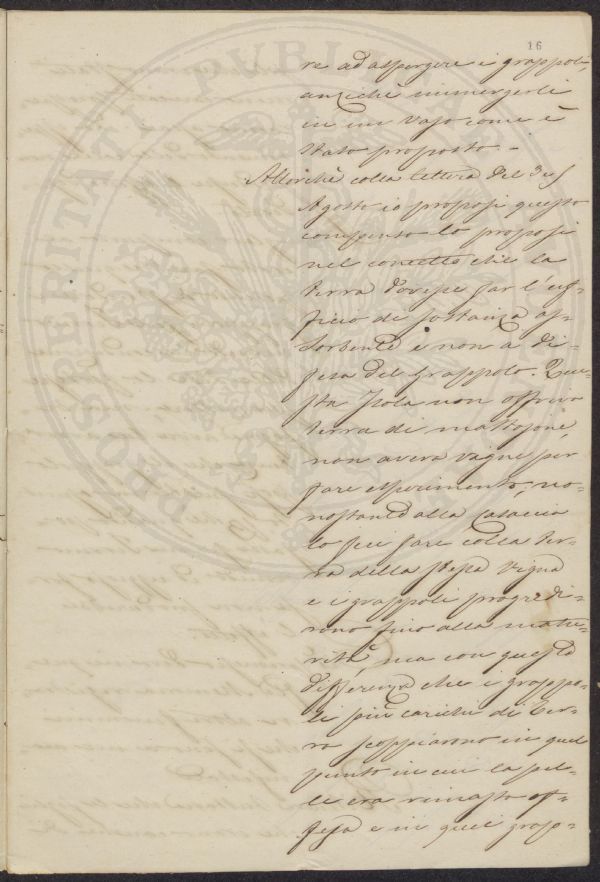 16
re ad aspergere i grappoli,
anzichè immergerli
in un vaso come è
stato proposto –
Allorchè colla lettera del 3
Agosto io proposi questo
lo proposi
nel concetto che la
terra dovesse far l'uf-
ficio di sostanza as-
sorbente e non a di-
fesa del grappolo. Que-
sta Isola non offriva
terra di mattojone,
non avera vigne per
fare esperimento, no-
nostante alla
lo feci fare colla ter-
ra della stessa vigna
e i grappoli progredi-
rono fino alla matu-
rità, ma con questa
differenza che i grappo-
li più carichi di ter-
ra scoppiarono in quel
punto in cui la pel-
le era rimasta of-
fesa e in quei grap-
PROSPERITATI PUBLICAE